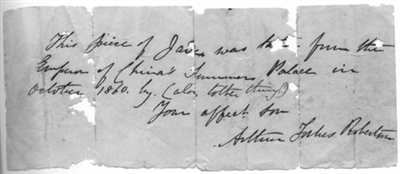 This piece of Jade was tkn from the
Emperor of China's Summer Palace in
October 1860. by (alex
Your affect son
Arthur Forbes Robertson